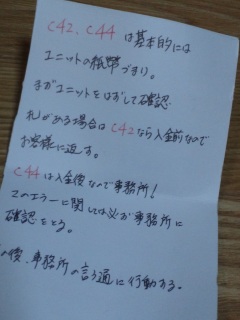 C42、C44 は基本的には
ユニットの紙幣づまり。
まずユニットをはずして確認
札がある場合はC42なら入金前なので
お客様に返す。
C44は入金後なので事務所!
このエラーに関しては必ず事務所に
確認をとる。
の後、事務所の言う通に行動する。